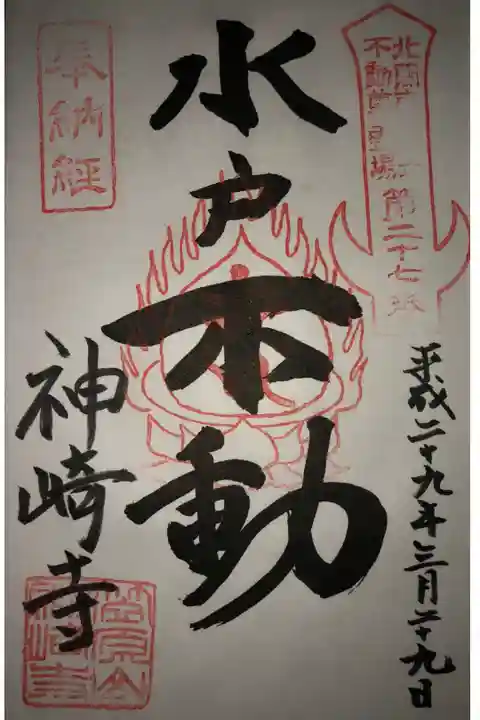 北関東
不動尊霊場
第二十七番
平成二十九年三月二十九日
水戸不動
奉納経
神崎寺